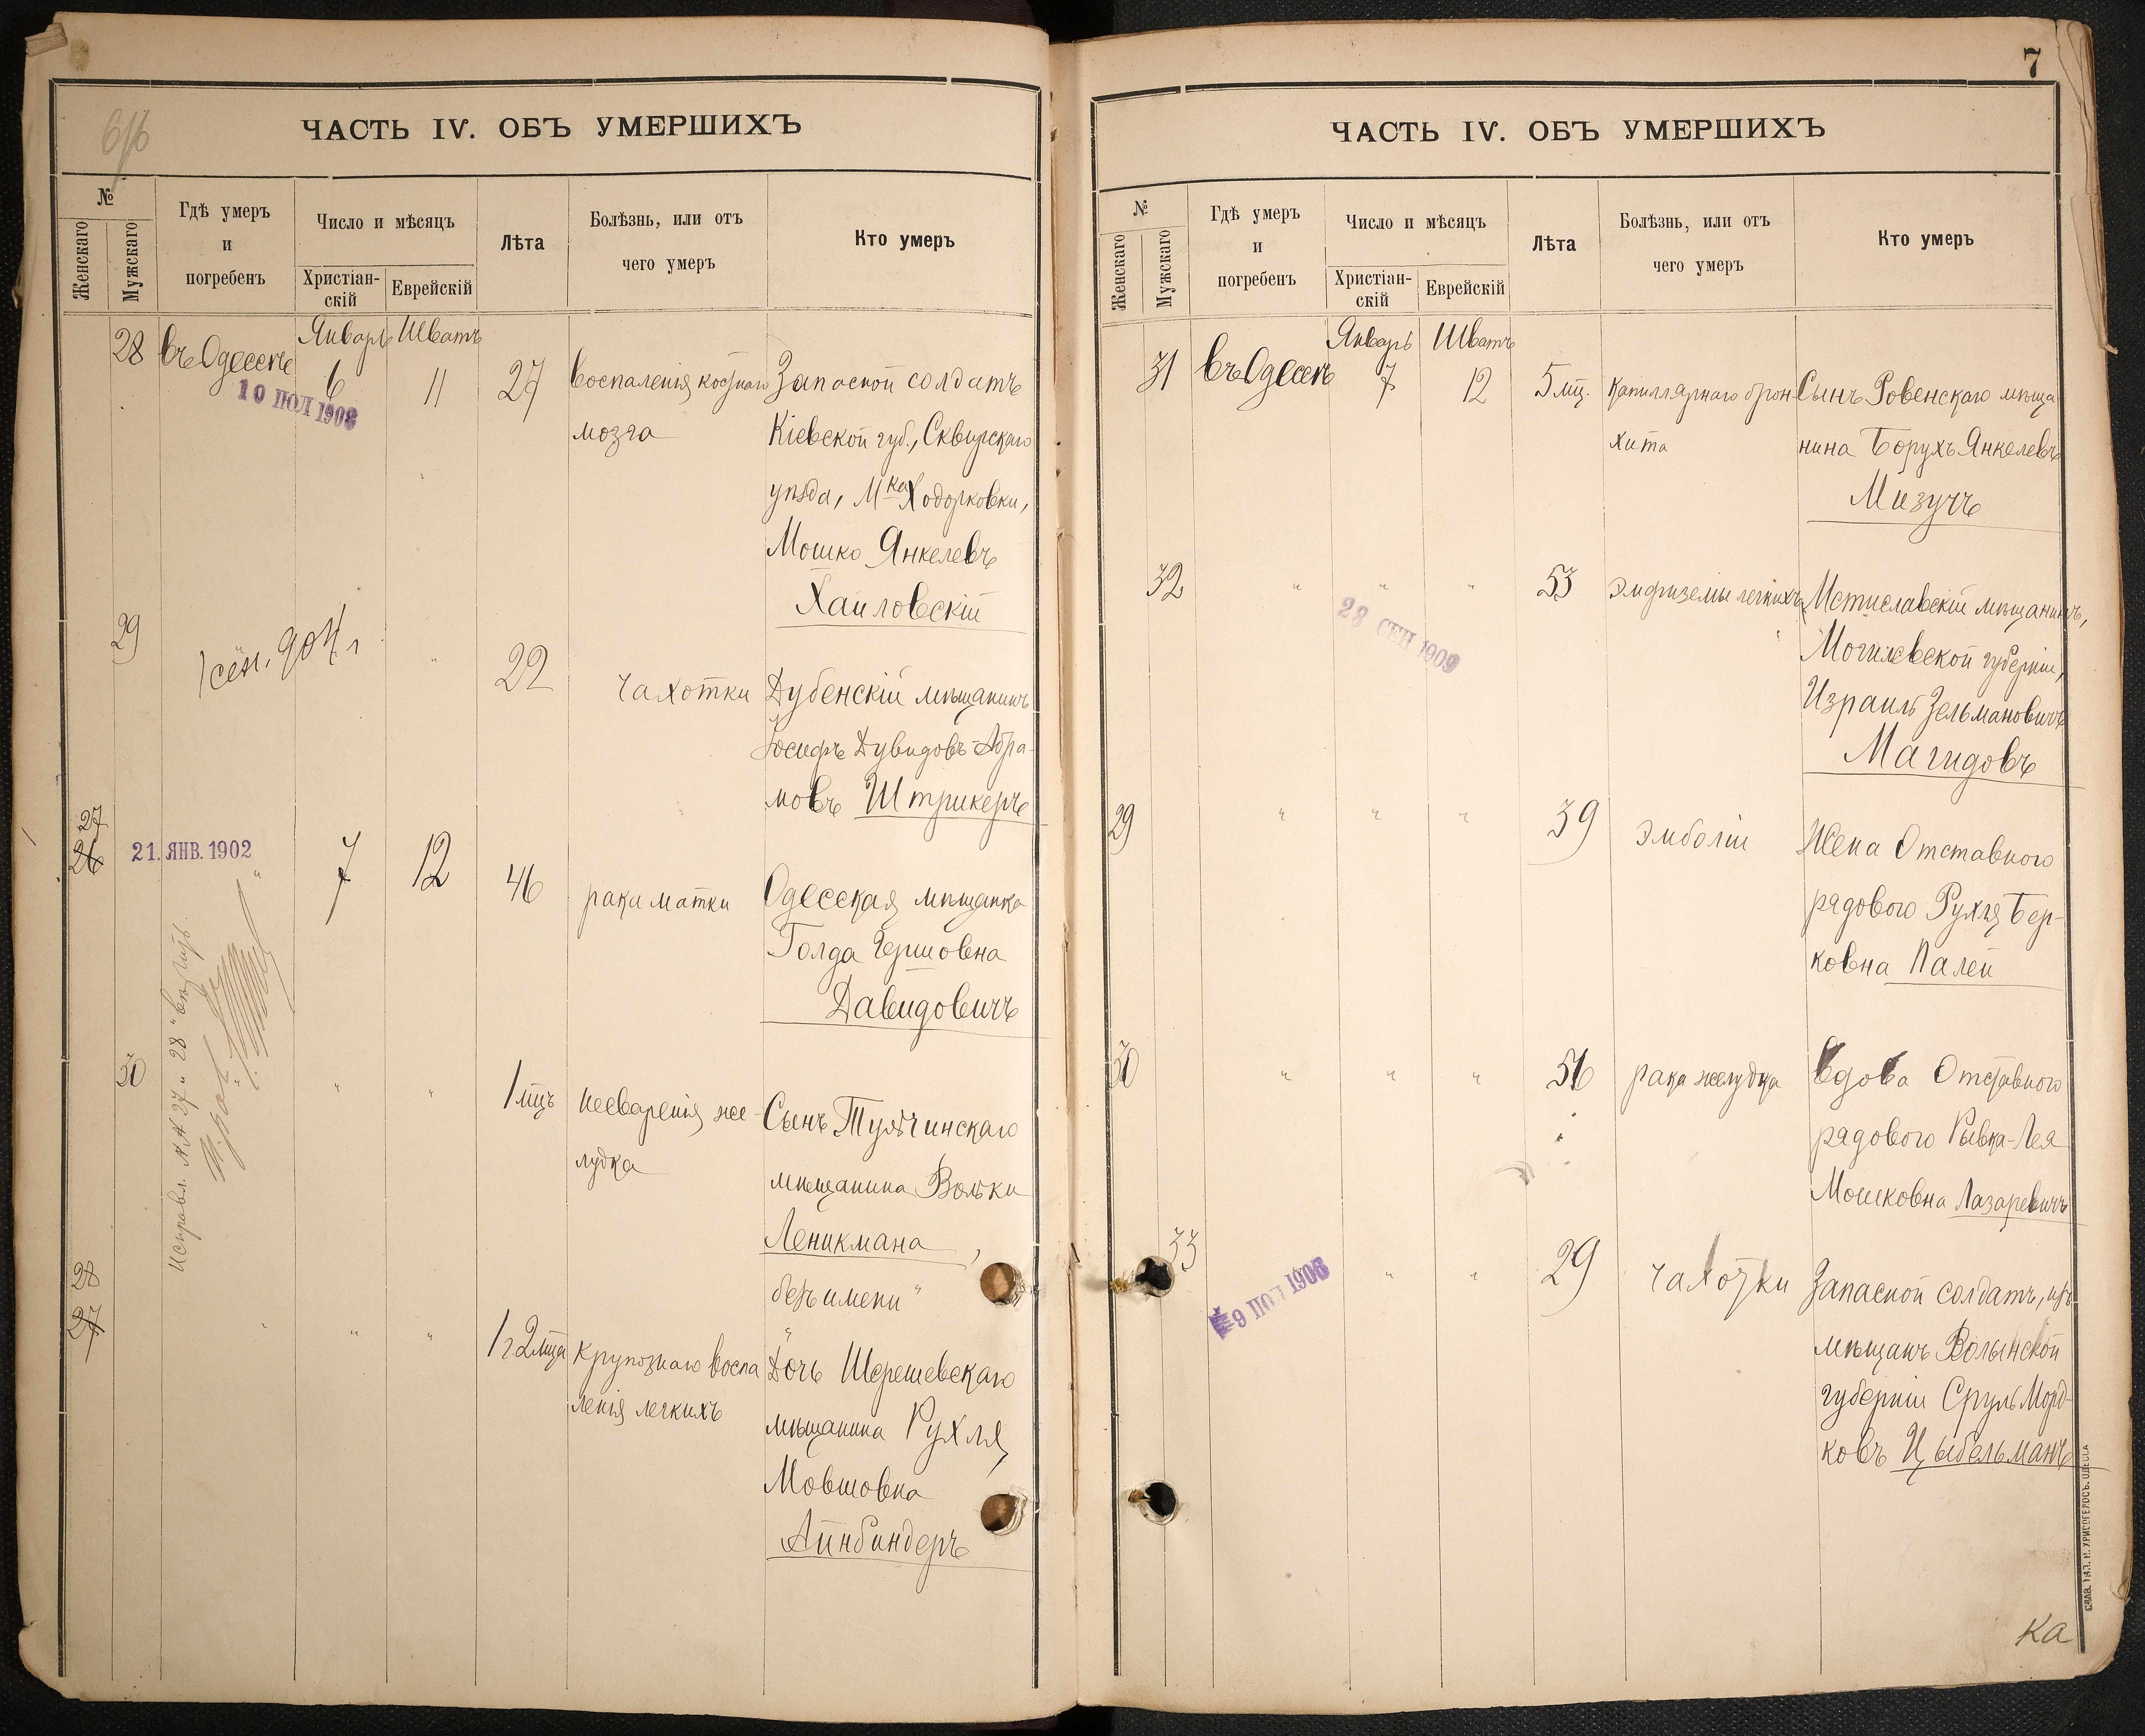 6/6
ЧАСТЬ IV. ОБЪ УМЕРШИХЪ
№
Женскаго
Мужскаго
Гдѣ умеръ
и
погребенъ
Число и мѣсяцъ
Христіан-
скій
Еврейскій
Лѣта
Болѣзнь, или отъ
чего умеръ
Кто умеръ
Январь Шватъ
28 въ Одессѣ 6 11 27 воспаленія костнаго Запасной солдатъ
10 ПОЛ 1908
мозга Кіевской губ., Сквирскаго
уѣзда, Мка Ходорковки,
Мошко Янкелевъ
Хаиловскій
29 1 сен. 904 г " 22 чахотки Дубенскій мѣщанинъ
Іосифъ Дувидовъ-Абра-
мовъ Штрикеръ
27
26 21. ЯНВ. 1902 " 7 12 46 рака матки Одесская мѣщанка
Голда Гершовна
Давидовичъ
Исправл. №№ 27 и 28 "вѣрить"
30 " " 1 мцъ несваренія же- Сынъ Тульчинскаго
лудка мѣщанина Вольки
Леникмана,
безъ имени "
28
27 " " " 1 г 2 мца крупознаго воспа Дочь Шерешевскаго
ленія легкихъ мѣщанина Рухля
Мовшовна
Айнбиндеръ
7
ЧАСТЬ IV. ОБЪ УМЕРШИХЪ
№
Женскаго
Мужскаго
Гдѣ умеръ
и
погребенъ
Число и мѣсяцъ
Христіан-
скій
Еврейскій
Лѣта
Болѣзнь, или отъ
чего умеръ
Кто умеръ
Январь Шватъ
31 въ Одессѣ 7 12 5 мц. капиллярнаго брон- Сынъ Ровенскаго мѣща-
хита нина Борухъ Янкелевъ
Мизучъ
32 " " " 53 эмфиземы легкихъ Мстиславскій мѣщанинъ,
28 СЕН 1909
Могилевской губерніи,
Израиль Зельмановичъ
Магидовъ
29 " " " 39 эмболіи Жена Отставного
рядового Рухля Бер-
ковна Палей
30 " " " 56 рака желудка Вдова Отставного
рядового Рывка-Лея
Мошковна Лазаревичъ
33 " " 29 чахотки Запасной солдатъ, изъ
9 ПОЛ 1908
мѣщанъ Волынской
губерніи Сруль Морд-
ковъ Цыбельманъ
ТИП. Н. ХРИСОГЕЛОСЪ. ОДЕССА
Ка